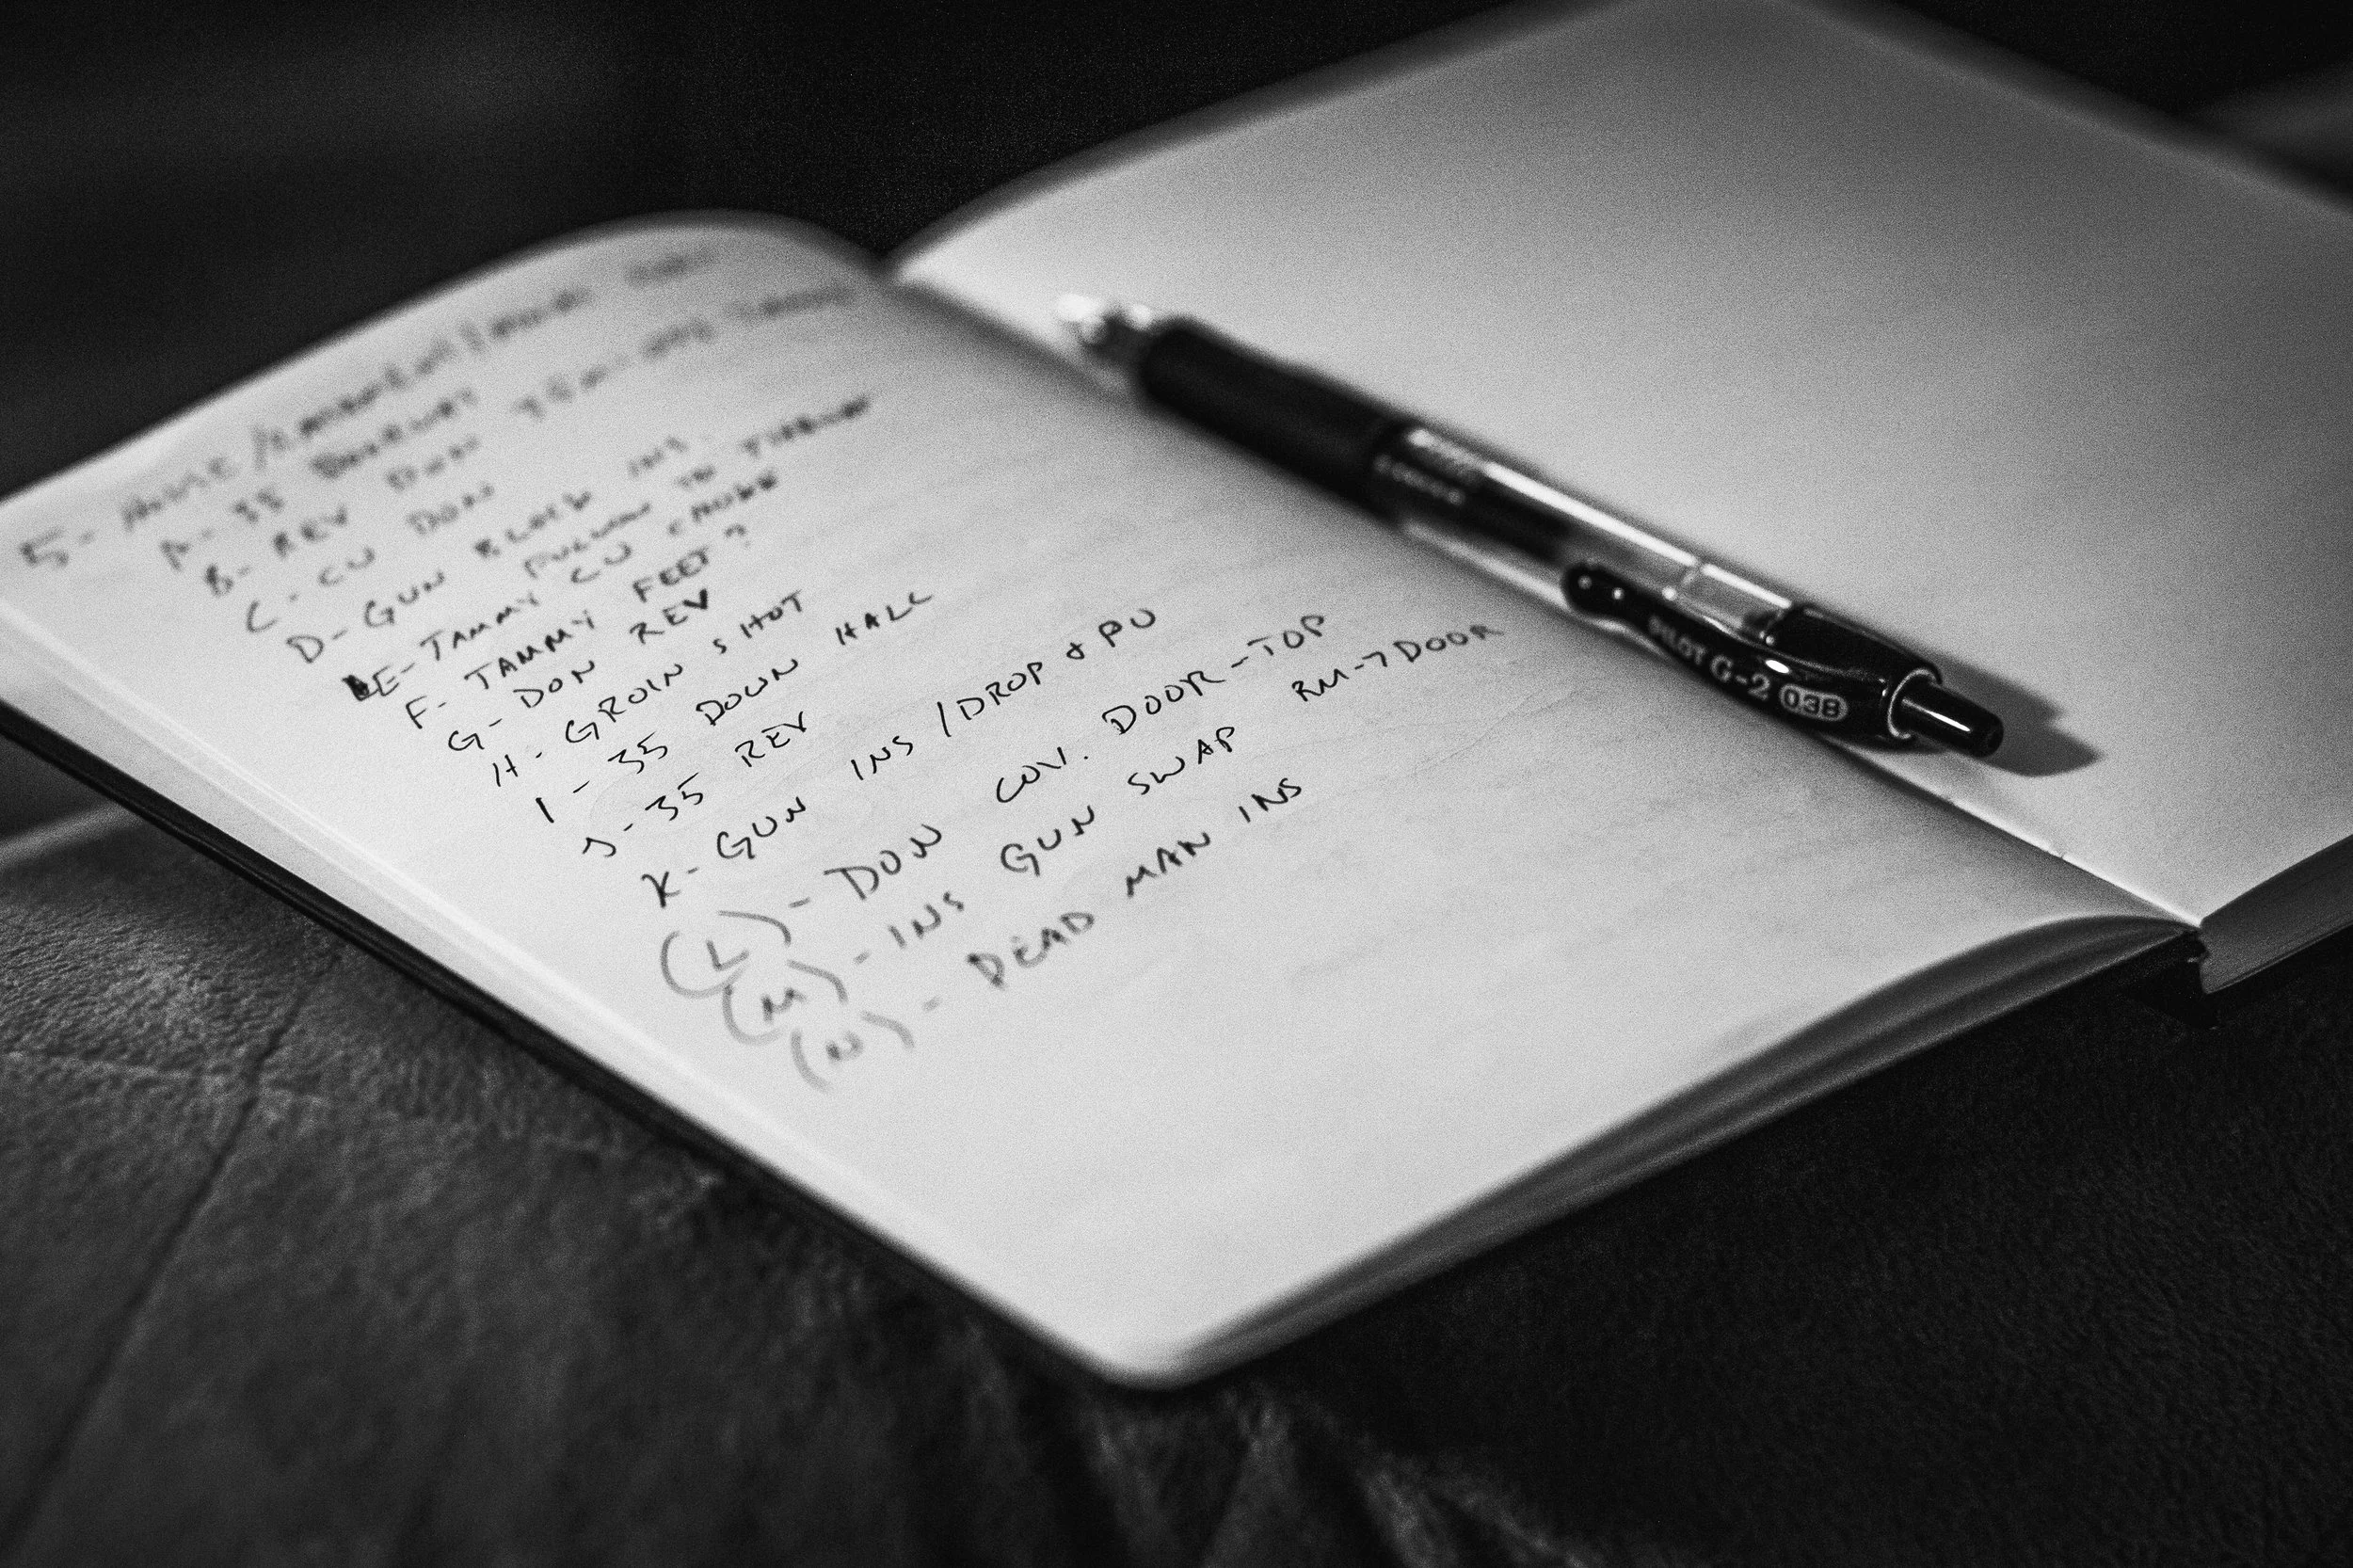 5-
A- 35
B- REV DON 35
C- CU DON
D- GUN BLOCK INS.
E- TAMMY CU
F- TAMMY FEET?
G- DON REV
H- GROIN SHOT
I- 35 DOWN HALL
J- 35 REV
K- GUN INS /DROP & PU
(L)- DON COV. DOOR-TOP
(M)- INS GUN SWAP RM-7 DOOR
(N)- DEAD MAN INS
PILOT G-2 038